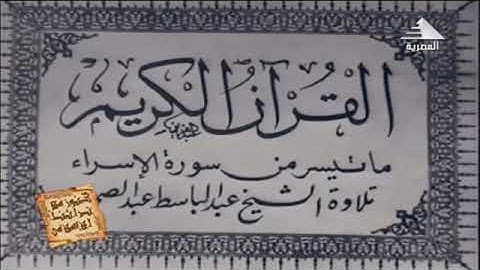 المصرية
القرآن الكريم
ما تيسر من سورة الإسراء
تلاوة الشيخ عبد الباسط عبد الصمد